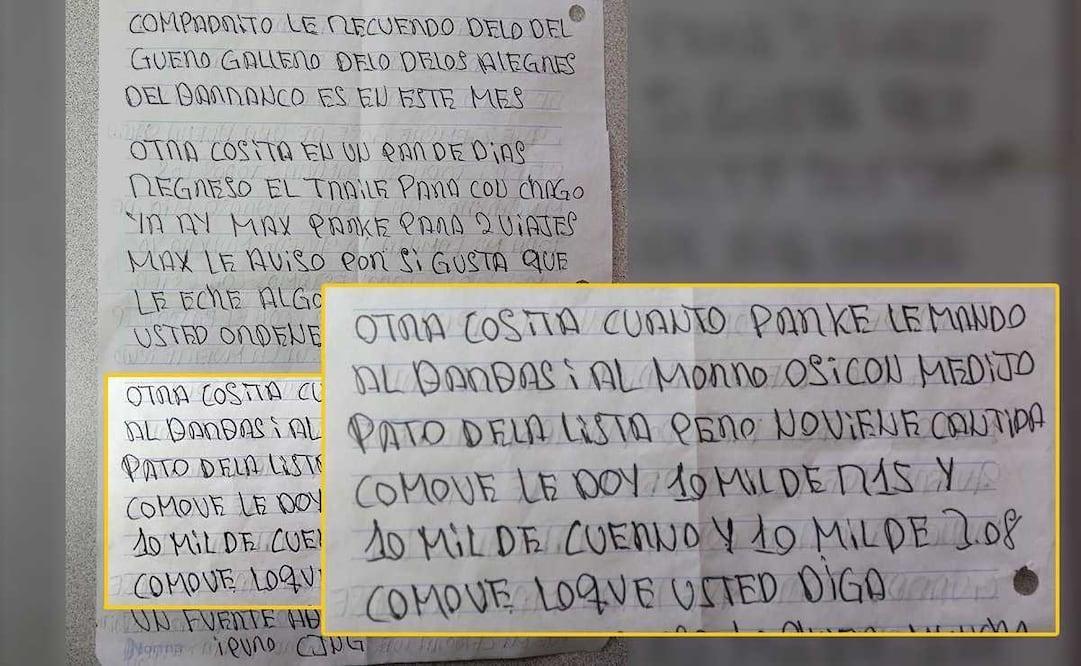 COMPADRITO LE RECUERDO DELO DEL
GUERO GALLERO DELO DELOS ALEGRES
DEL BARRANCO ES EN ESTE MES
OTRA COSITA EN UN PAR DE DiAS
REGRESO EL TRAILE PARA CON CHAGO
YA AY MAX PARKE PARA 2 ViAJES
MAX LE AViSO POR Si GUSTA QUE
LE ECHE ALGO
USTED ORDENE
OTRA COSITA CU
AL BARBAS i AL
PATO DELA LiST
COMOVE LE DOY
10 MiL DE CUER
COMOVE LOQU
UN FUERTE AB
iPURO CJNG
Norma
OTRA COSITA CUANTO PARKE LE MANDO
AL BARBAS i AL MORRO OSiCON MEDiJO
PATO DELA LiSTA PERO NOViENE CANTiDA
COMOVE LE DOY 10 MiL DE R15 Y
10 MiL DE CUERNO Y 10 MiL DE 3.08
COMOVE LOQUE USTED DiGA